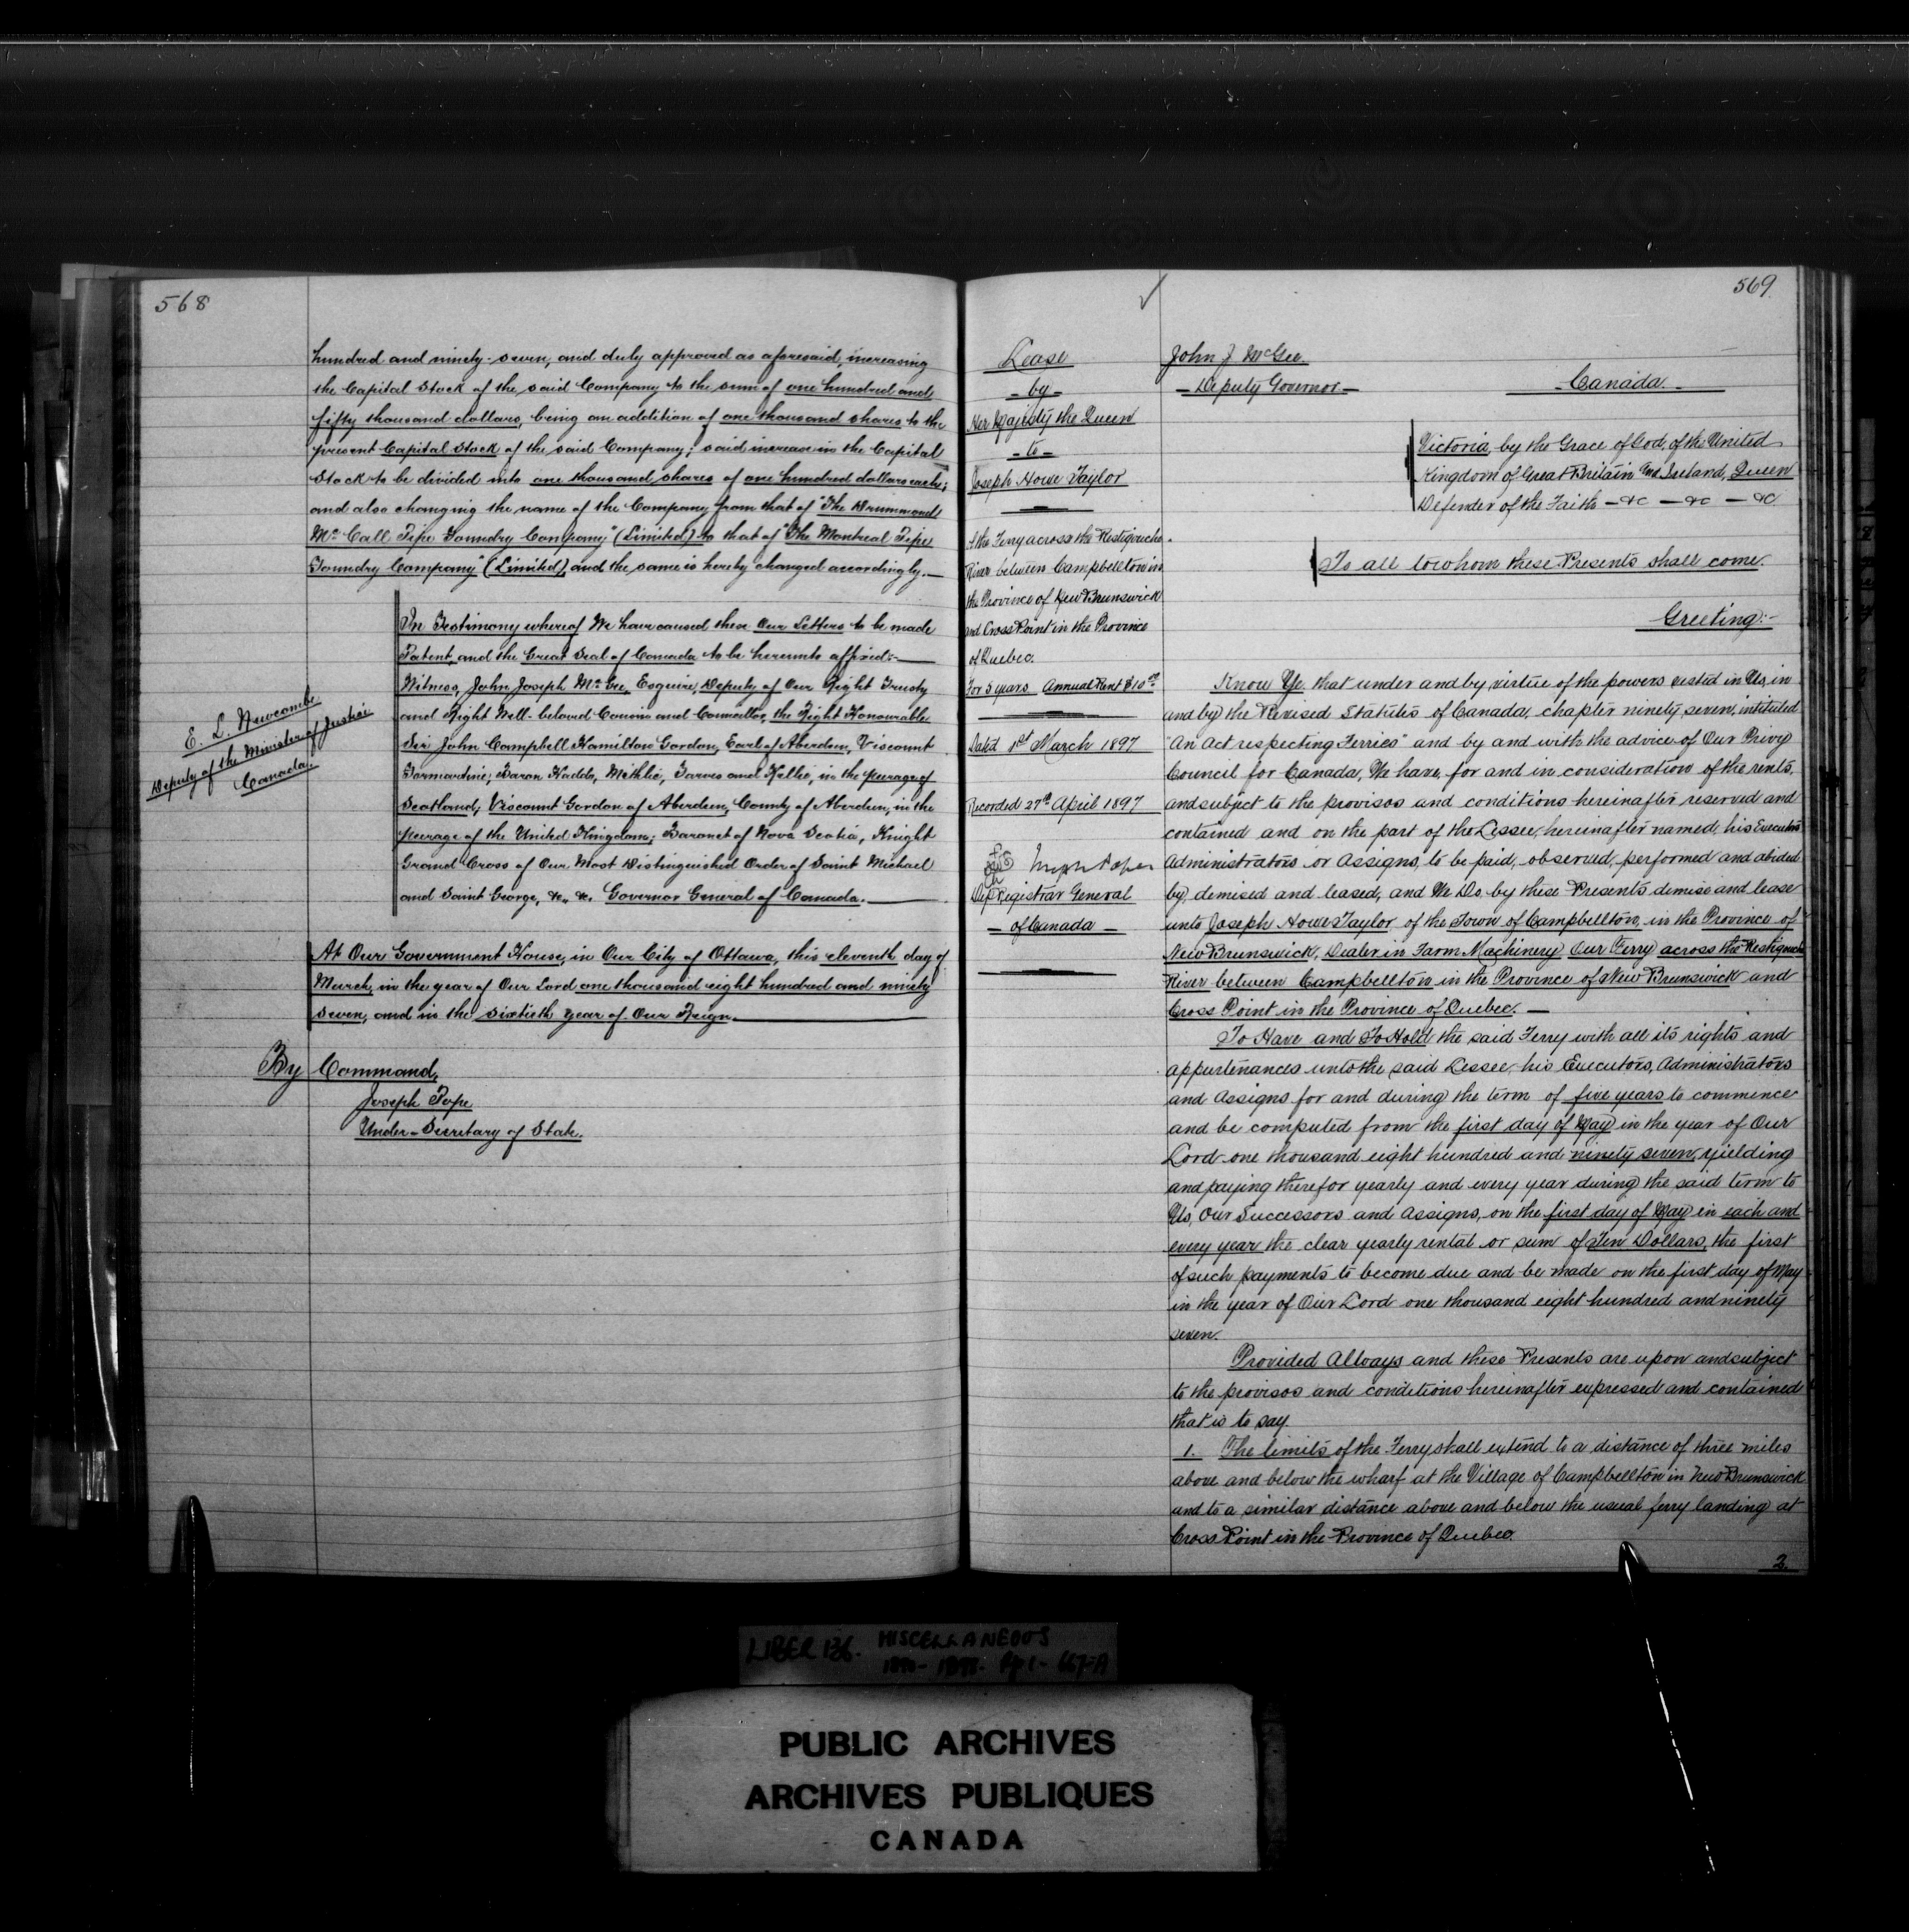 568
hundred and ninety-seven, and duly approved as aforesaid, increasing
the Capital Stock of the said Company to the sum of one hundred and
fifty thousand dollars, being an addition of one thousand shares to the
present Capital Stock of the said Company; said increase in the Capital
Stock to be divided into one thousand shares of one hundred dollars each;
and also changing the name of the Company from that of "The Drummond
McCall Pipe Foundry Company" (Limited) to that of "The Montreal Pipe
Foundry Company" (Limited), and the same is hereby changed accordingly.
In Testimony whereof We have caused these Our Letters to be made
Patent, and the Great Seal of Canada to be hereunto affixed:
Witness, John Joseph McGee, Esquire, Deputy of Our Right Trusty
and Right Well-beloved Cousin and Councillor, the Right Honourable
Sir John Campbell Hamilton Gordon, Earl of Aberdeen, Viscount
Formartine, Baron Haddo, Methlic, Tarves and Kellie, in the peerage of
Scotland; Viscount Gordon of Aberdeen, County of Aberdeen, in the
peerage of the United Kingdom; Baronet of Nova Scotia, Knight
Grand Cross of Our Most Distinguished Order of Saint Michael
and Saint George, &c., &c. Governor General of Canada.
E. L. Newcombe
Deputy of the Minister of Justice
Canada.
At Our Government House, in Our City of Ottawa, this eleventh day of
March, in the year of Our Lord one thousand eight hundred and ninety
seven, and in the sixtieth year of Our Reign.
By Command,
Joseph Pope
Under-Secretary of State.
569.
Lease
- by -
Her Majesty the Queen
- to -
Joseph Howe Taylor
of the Ferry across the Restigouche
River between Campbellton in
the Province of New Brunswick
and Cross Point in the Province
of Quebec.
For 5 years Annual Rent $10.00
Dated 1st March 1897
Recorded 27th April 1897
Joseph Pope
Dep Registrar General
- of Canada -
John J McGee
- Deputy Governor -
- Canada. -
Victoria, by the Grace of God, of the United
Kingdom of Great Britain and Ireland, Queen
Defender of the Faith - &c - &c - &c
To all to whom these Presents shall come.
Greeting:-
Know Ye that under and by virtue of the powers vested in Us, in
and by the Revised Statutes of Canada, chapter ninety seven, intituled
"An Act respecting Ferries" and by and with the advice of Our Privy
Council for Canada, We have, for and in consideration of the rents,
and subject to the provisos and conditions hereinafter reserved and
contained and on the part of the Lessee, hereinafter named, his Executors
Administrators or Assigns, to be paid, observed, performed and abided
by, demised and leased, and We Do by these Presents demise and lease
unto Joseph Howe Taylor, of the Town of Campbellton, in the Province of
New Brunswick, Dealer in Farm Machinery, Our Ferry across the Restigouche
River between Campbellton in the Province of New Brunswick and
Cross Point in the Province of Quebec.
To Have and To Hold the said Ferry with all its rights and
appurtenances unto the said Lessee, his Executors, Administrators
and Assigns for and during the term of five years to commence
and be computed from the first day of May in the year of Our
Lord one thousand eight hundred and ninety seven, yielding
and paying therefor yearly and every year during the said term to
Us, Our Successors and Assigns, on the first day of May in each and
every year the clear yearly rental or sum of Ten Dollars, the first
of such payments to become due and be made on the first day of May
in the year of Our Lord one thousand eight hundred and ninety
seven.
Provided Always and these Presents are upon and subject
to the provisos and conditions hereinafter expressed and contained
that is to say.
1. The limits of the Ferry shall extend to a distance of three miles
above and below the wharf at the Village of Campbellton in New Brunswick
and to a similar distance above and below the usual ferry landing at
Cross Point in the Province of Quebec.
2.
LIBER 136. MISCELLANEOUS
PUBLIC ARCHIVES
ARCHIVES PUBLIQUES
CANADA